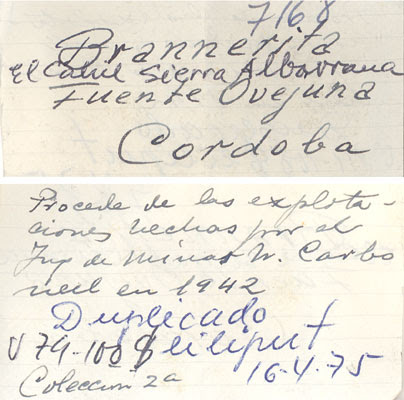 7168
Brannerita
El Cabril Sierra Albarrana
Fuente Ovejuna
Cordoba
Procede de las explota-
ciones hechas por el
Ing de Minas W. Carbo
nell en 1942
Duplicado
V 79-100 $ eiliput
16-4-75
Coleccion 2a